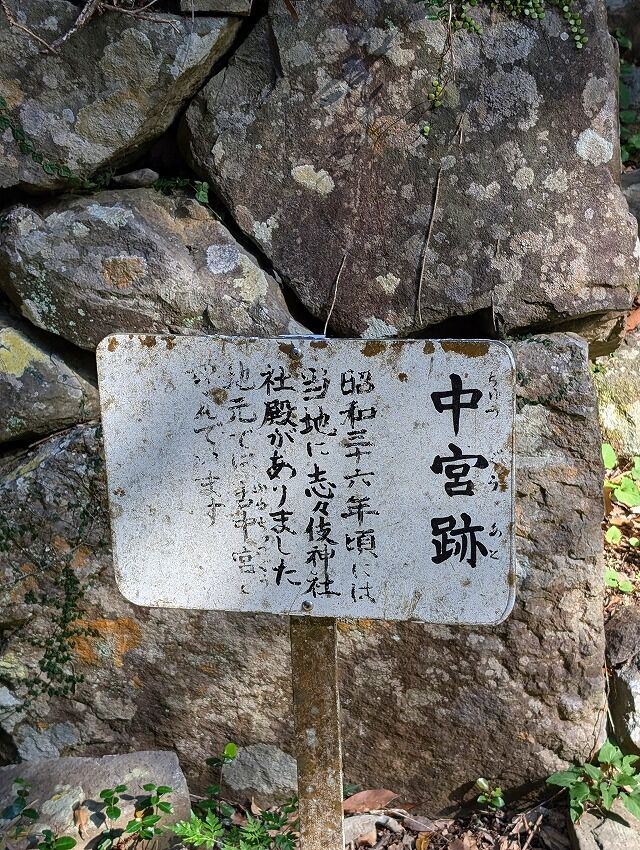 中宮跡
昭和三十六年頃には
当地に志々伎神社
社殿がありました
地元では古中宮と
呼んでいます